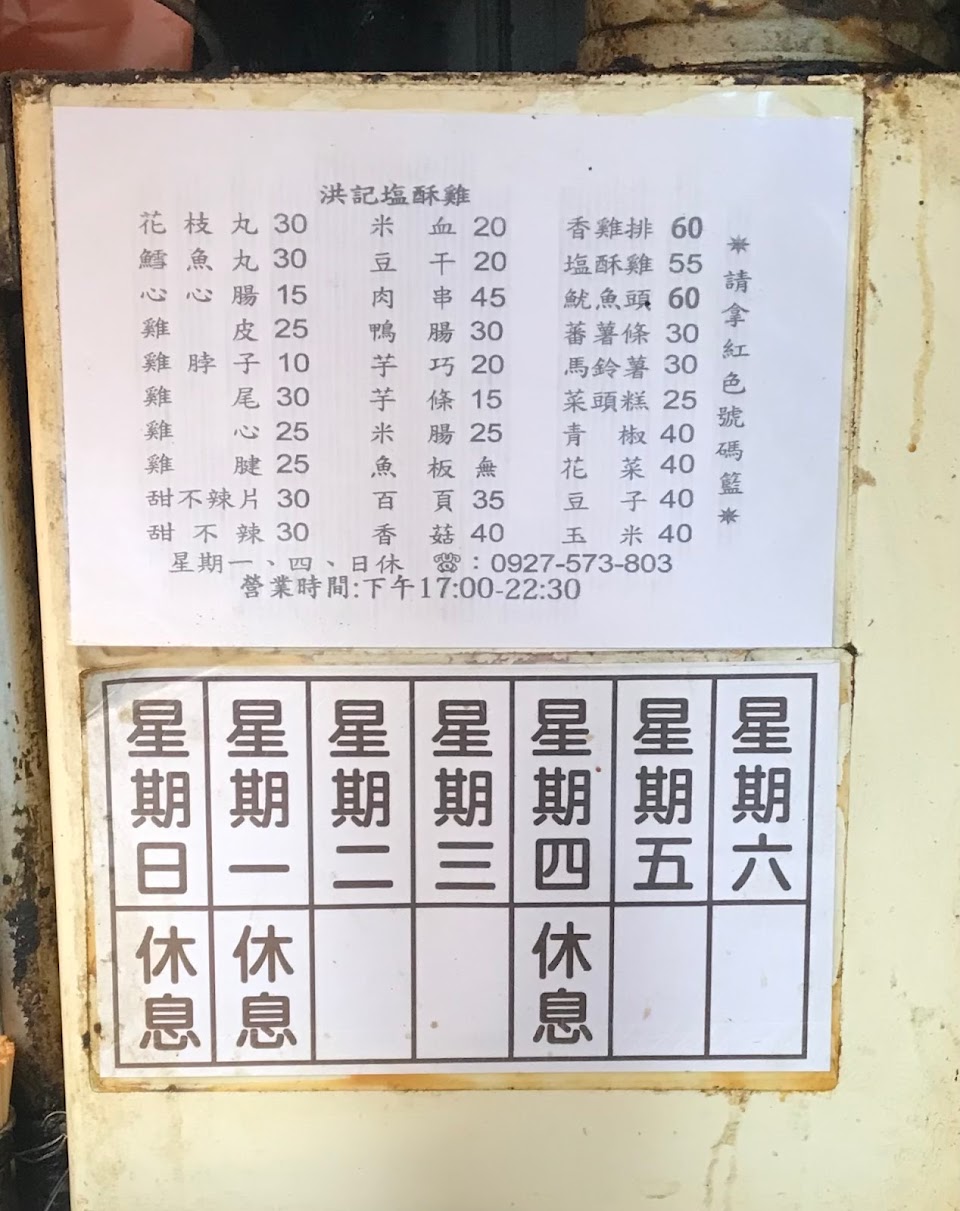 洪記塩酥雞
花枝丸 30 米血 20 香雞排 60
鱈魚丸 30 豆干 20 塩酥雞 55
心心腸 15 肉串 45 魷魚頭 60
雞皮 25 鴨腸 30 蕃薯條 30
雞脖子 10 芋巧 20 馬鈴薯 30
雞尾 30 芋條 15 菜頭糕 25
雞心 25 米腸 25 青椒 40
雞腱 25 魚板 無 花菜 40
甜不辣片 30 百頁 35 豆子 40
甜不辣 30 香菇 40 玉米 40
星期一、四、日休 ☎：0927-573-803
營業時間:下午17:00-22:30
✷請拿紅色號碼籃✷
星期日 星期一 星期二 星期三 星期四 星期五 星期六
休息 休息 休息